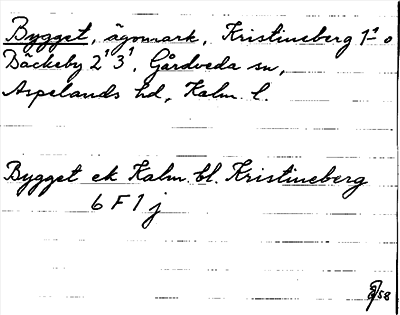 Bygget, ägomark, Kristineberg 1¹ o
Bäckeby 2¹ 3¹, Gårdveda sn,
Aspelands hd, Kalm. l.
Bygget ek Kalm. bl. Kristineberg
6 F 1 j
/58